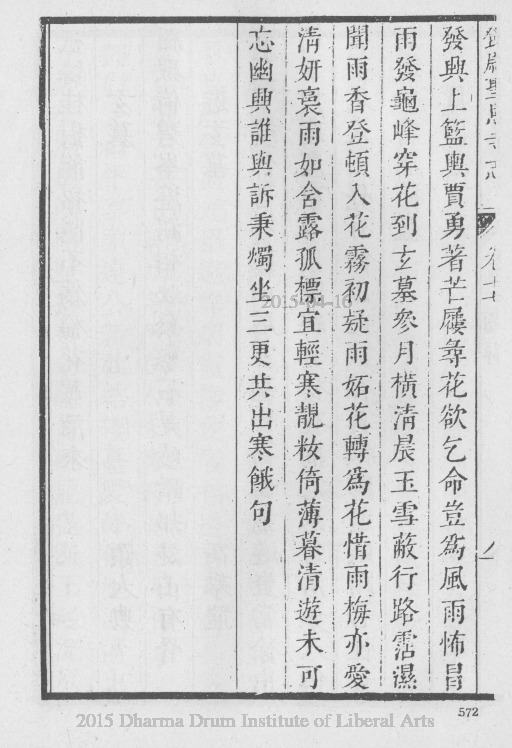 鄧尉聖恩寺志 卷十 八
發興上籃輿賈勇著芒屨尋花欲乞命豈為風雨怖冒
雨發龜峰穿花到玄墓參月橫清晨玉雪蔽行路霑濕
聞雨香登頓入花霧初疑雨妬花轉為花惜雨梅亦愛
清妍裛雨如含露孤標宜輕寒靚妝倚薄暮清遊未可
忘幽興誰與訴秉燭坐三更共出寒餓句
2015-04-16
572
2015 Dharma Drum Institute of Liberal Arts